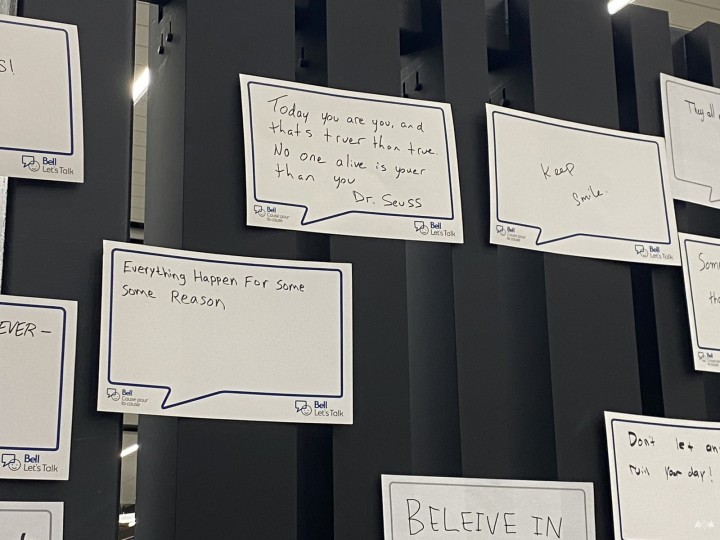 S!
Bell
Let's Talk
Today you are you, and
thats truer than true.
No one alive is youer
than you
Dr. Seuss
Bell
Cause pour
la cause
Bell
Let's Talk
Keep
Smile.
Bell
Cause pour
la cause
Bell
Let's Talk
They all
Everything Happen For Some
Some Reason
Bell
Cause pour
la cause
Bell
Let's Talk
EVER –
Bell
Let's Talk
Som
tho
Bell
Don't let an
ruin your day!
BELEIVE IN